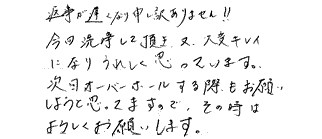 返事が遅くなり申し訳ありません!!
今回洗浄して頂き、又、大変キレイ
になりうれしく思っています。
次回オーバーホールする際もお願い
しようと思ってますので、その時は
よろしくお願いします。